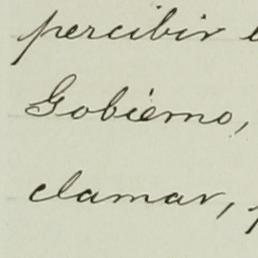 percibir
Gobiérno,
clamar,